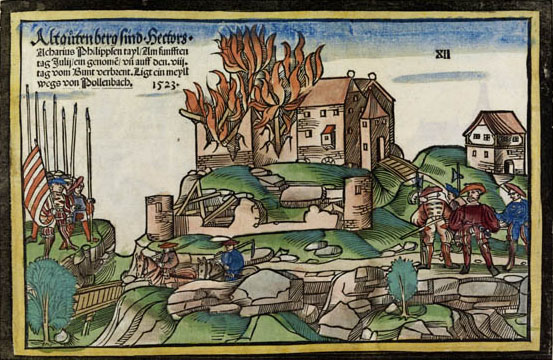 Altgůtenberg sind Hectors.
Acharius Philippsen tayl/Am funfften
tag Julij/ein genomē/vñ auff den. viij.
tag vom Bunt verbrent. Ligt ein meyll
wegs von Pollenbach.
1523.
XII